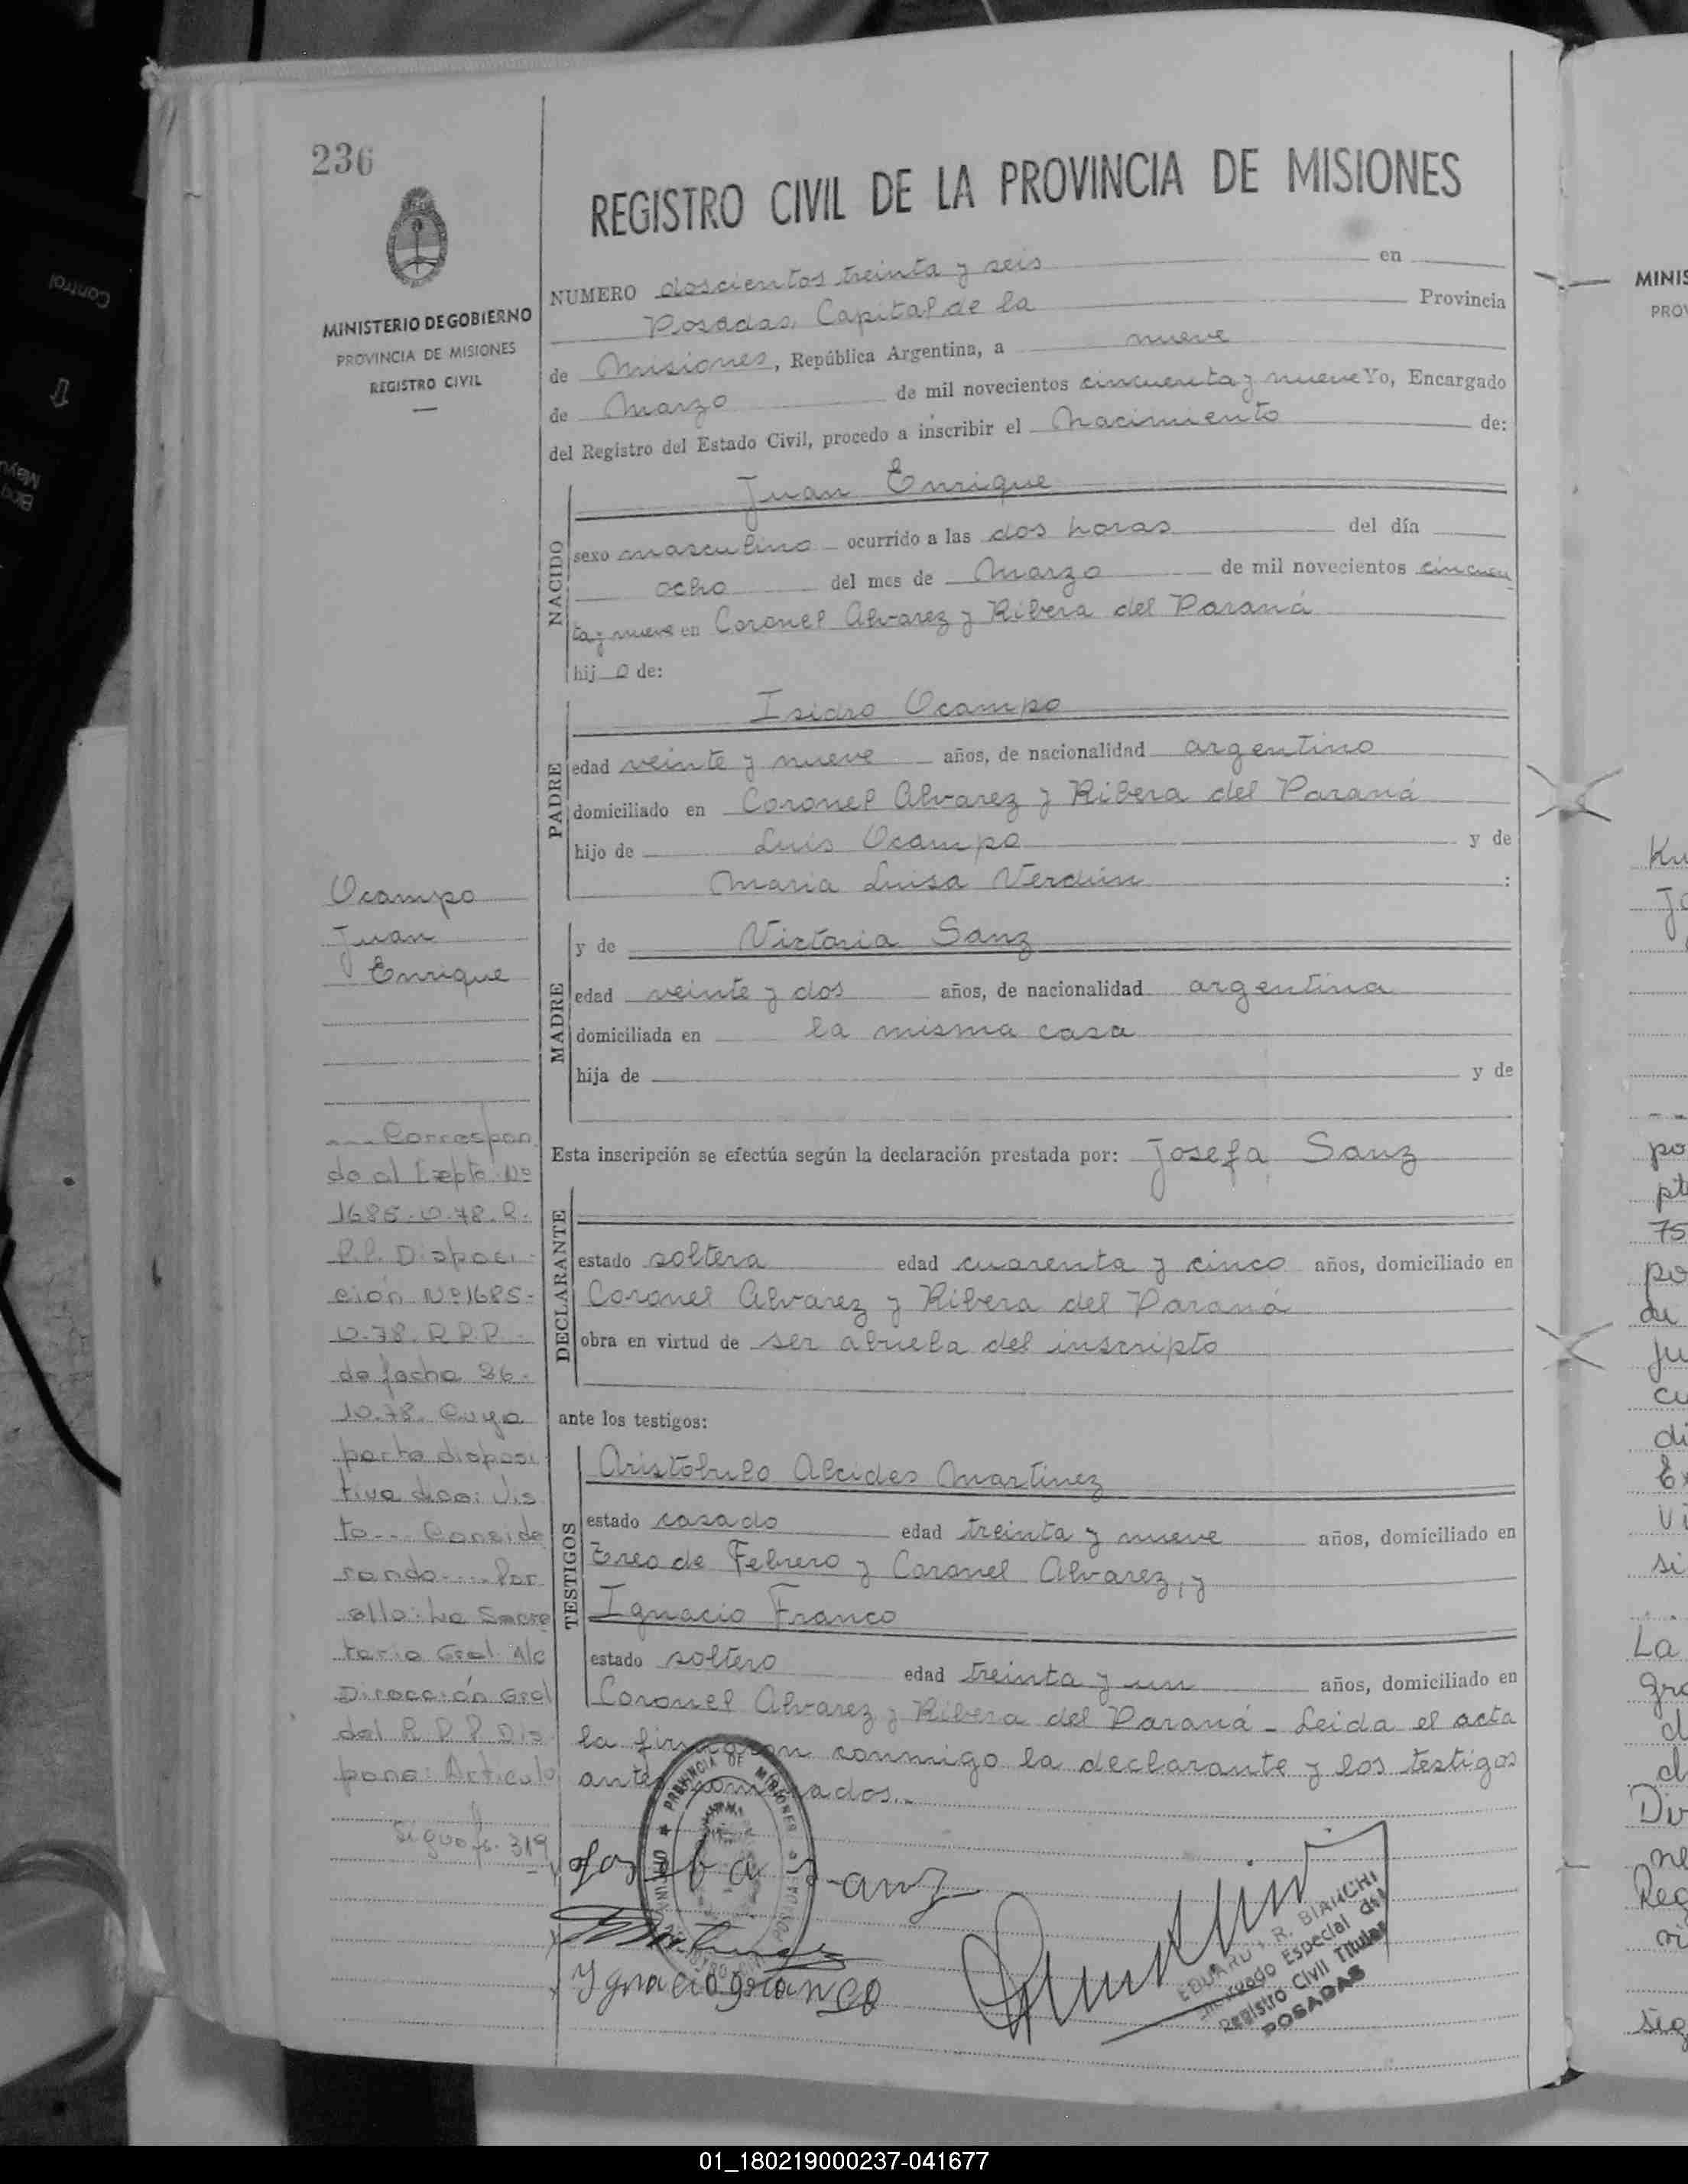 236
MINISTERIO DE GOBIERNO
PROVINCIA DE MISIONES
REGISTRO CIVIL
REGISTRO CIVIL DE LA PROVINCIA DE MISIONES
NUMERO doscientos treinta y seis en
Posadas, Capital de la Provincia
de Misiones, República Argentina, a nueve
de Marzo de mil novecientos cincuenta y nueve Yo, Encargado
del Registro del Estado Civil, procedo a inscribir el Nacimiento de:
NACIDO
Juan Enrique
sexo masculino ocurrido a las dos horas del día
ocho del mes de Marzo de mil novecientos cincuen
ta y nueve en Coronel Alvarez y Ribera del Paraná
hijo de:
PADRE
Isidro Ocampo
edad veinte y nueve años, de nacionalidad argentino
domiciliado en Coronel Alvarez y Ribera del Paraná
hijo de Luis Ocampo y de
Maria Luisa Verdún :
MADRE
y de Victoria Sanz
edad veinte y dos años, de nacionalidad argentina
domiciliada en la misma casa
hija de y de
Esta inscripción se efectúa según la declaración prestada por: Josefa Sanz
DECLARANTE
estado soltera edad cuarenta y cinco años, domiciliado en
Coronel Alvarez y Ribera del Paraná
obra en virtud de ser abuela del inscripto
ante los testigos:
TESTIGOS
Aristobulo Alcides Martinez
estado casado edad treinta y nueve años, domiciliado en
Tres de Febrero y Coronel Alvarez, y
Ignacio Franco
estado soltero edad treinta y un años, domiciliado en
Coronel Alvarez y Ribera del Paraná - Leida el acta
la firmaron conmigo la declarante y los testigos
antes nombrados.-
Josefa Sanz
Ygnacio Franco
PROVINCIA DE MISIONES
EDUARDO R. BIANCHI
Encargado Especial del
Registro Civil Titular
POSADAS
Ocampo
Juan
Enrique
--- Correspon
de al Expte. Nº
1685.O.78.R.
P.P. Disposi-
ción Nº 1685-
O.78. R.P.P.
de fecha 26-
10.78. Cuya
parte disposi
tiva dice: Vis
to... Conside
rando.... Por
ello: La Secre
taria Gral. A/c
Dirección Gral
del R.P.P. Dis
pone: Articulo
Sigue fs. 319
Control
MINIS
PRO
Ku
po
75
po
de
cu
di
si
La
gra
Di
ne
Reg
sig
01_180219000237-041677